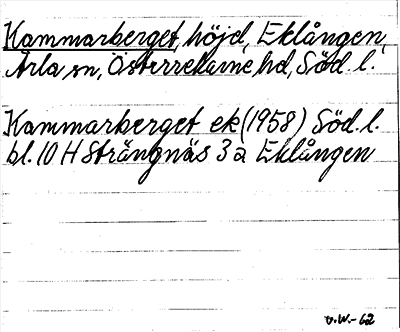 Kammarberget, höjd, Eklången,
Ärla sn, Österrekarne hd, Söd. l.
Kammarberget ek (1958) Söd. l.
bl. 10 H Strängnäs 3 a Eklången
v.W.-62